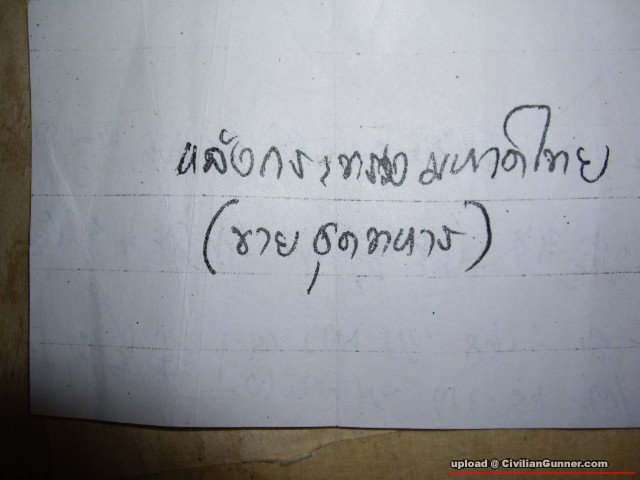 หลังกระทรวงมหาดไทย
(ขายชุดทหาร)
upload @ CivilianGunner.com